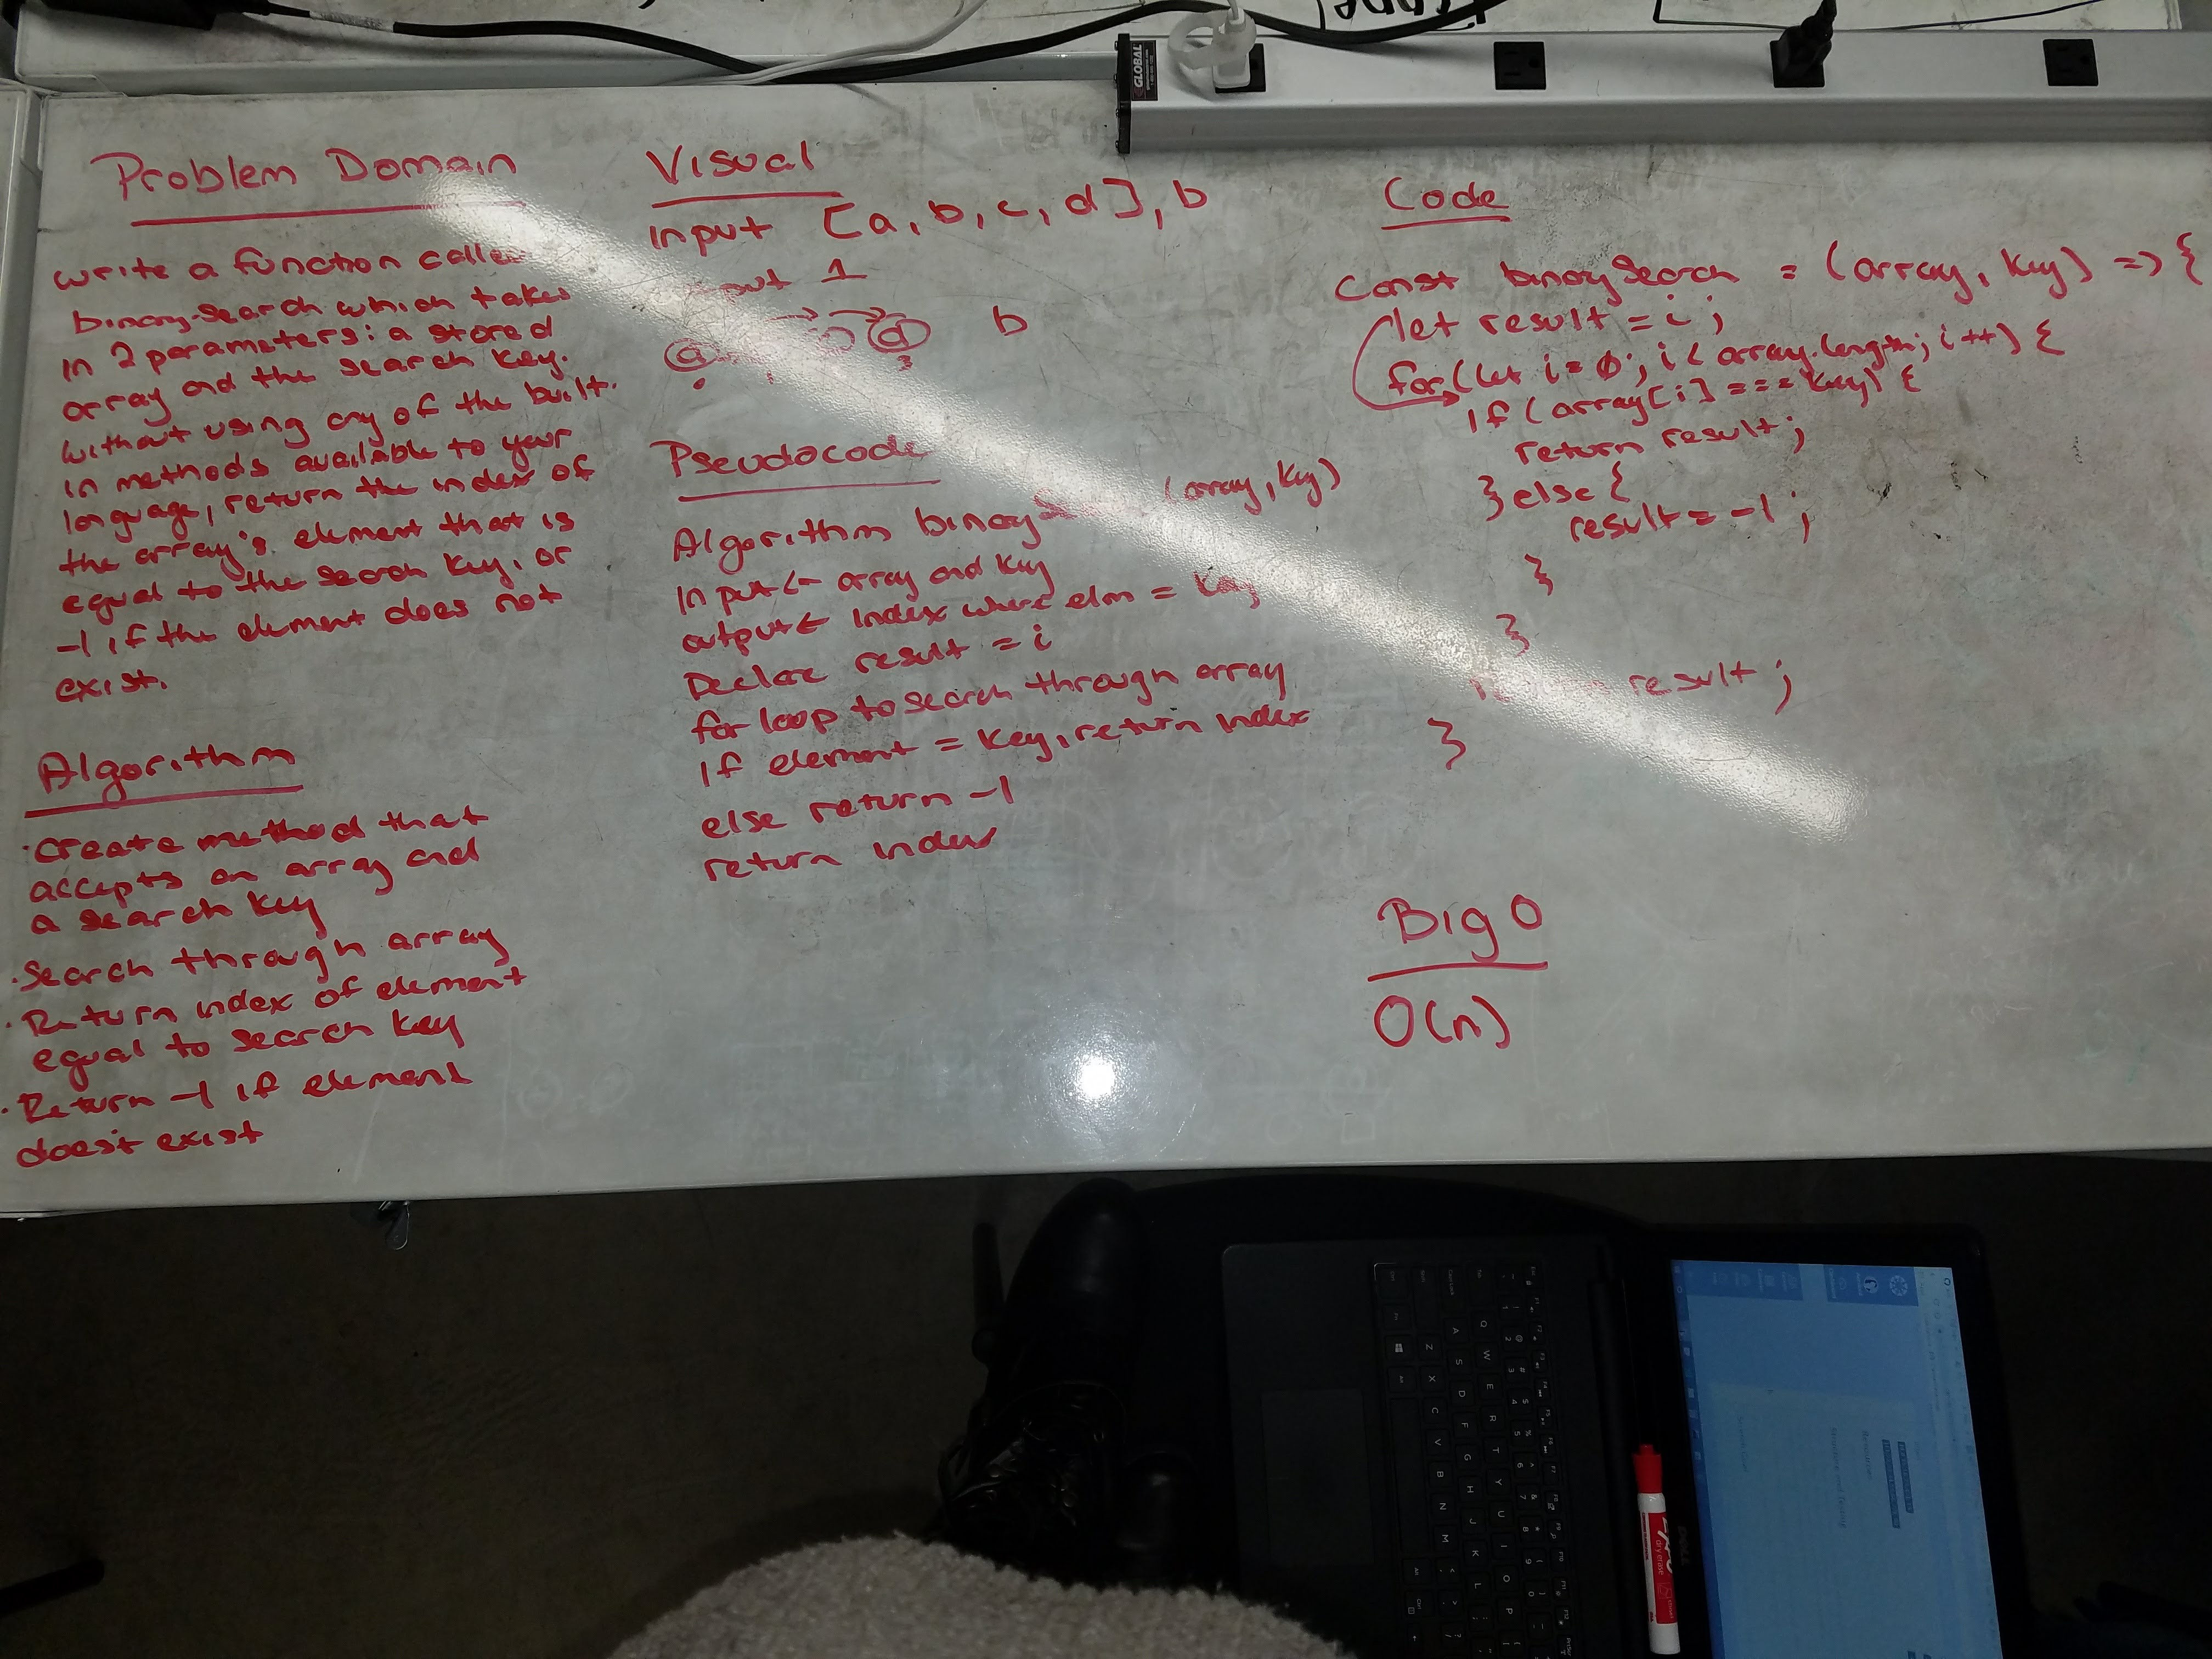 Problem Domain
write a function called
binary-search which takes
in 2 parameters: a stored
array and the search key.
without using any of the built-
in methods available to your
language, return the index of
the array's element that is
equal to the search key, or
-1 if the element does not
exist.
Algorithm
· Create method that
accepts an array and
a search key
· Search through array
· Return index of element
equal to search key
· Return -1 if element
does't exist
Visual
input [a, b, c, d], b
1
a d b
0 1 3
Pseudocode
Algorithm binary (array, key)
Input <- array and key
output <- index where elm = key
Declare result = i
for loop to search through array
if element = key, return index
else return -1
return index
Code
const binarySearch = (array, key) => {
let result = i;
for (let i = 0; i < array.length; i++) {
if (array[i] === key) {
return result;
} else {
result = -1;
}
}
result;
}
Big O
O(n)
GLOBAL
EXPO
dry erase
DELL